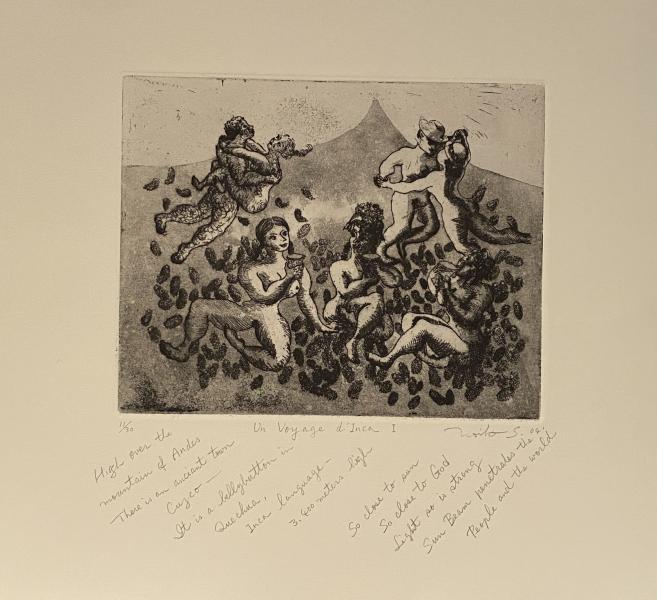 11/30
Un Voyage d'Inca I
S. 04.
High over the
mountain of Andes
There is an ancient town
Cuzco —
It is a bellybutton in
Quechua,
Inca language —
3,400 meters high
So close to sun
So close to God
Light so is strong
Sun Beam penetrates the
People and the world